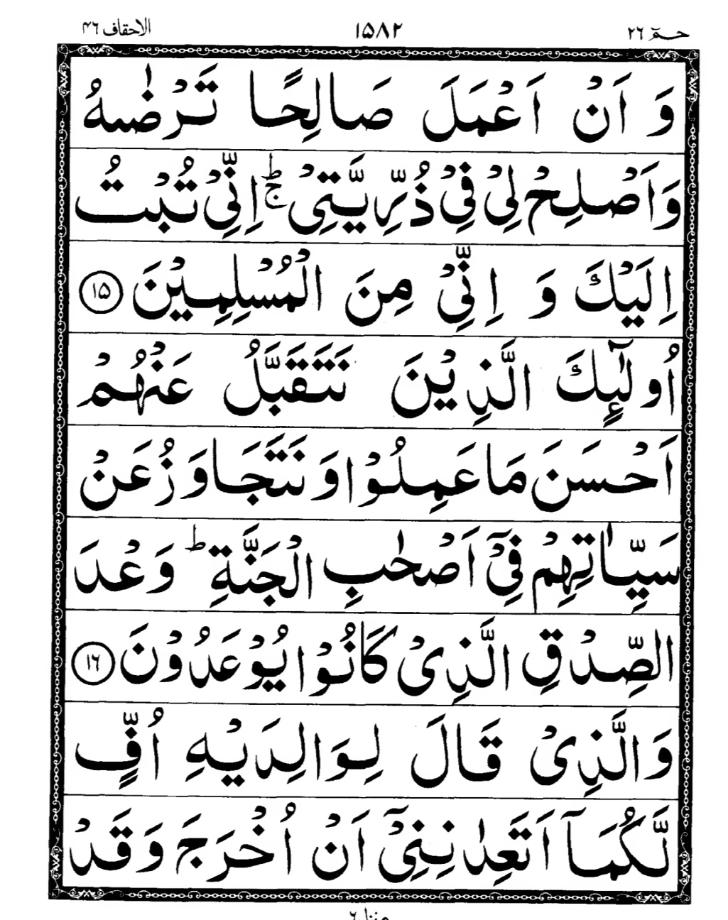 حٰمٓ ٢٦ ١٥٨٢ الاحقاف ٤٦
وَ اَنْ اَعْمَلَ صَالِحًا تَرْضٰىهُ
وَاَصْلِحْ لِیْ فِیْ ذُرِّیَّتِیْ ۚؕ اِنِّیْ تُبْتُ
اِلَیْكَ وَ اِنِّیْ مِنَ الْمُسْلِمِیْنَ ﴿۱۵﴾
اُولٰٓئِكَ الَّذِیْنَ نَتَقَبَّلُ عَنْهُمْ
اَحْسَنَ مَا عَمِلُوْا وَ نَتَجَاوَزُ عَنْ
سَیِّاٰتِهِمْ فِیْۤ اَصْحٰبِ الْجَنَّةِ ؕ وَعْدَ
الصِّدْقِ الَّذِیْ كَانُوْا یُوْعَدُوْنَ ﴿۱۶﴾
وَالَّذِیْ قَالَ لِوَالِدَیْهِ اُفٍّ
لَّكُمَاۤ اَتَعِدٰنِنِیْۤ اَنْ اُخْرَجَ وَقَدْ